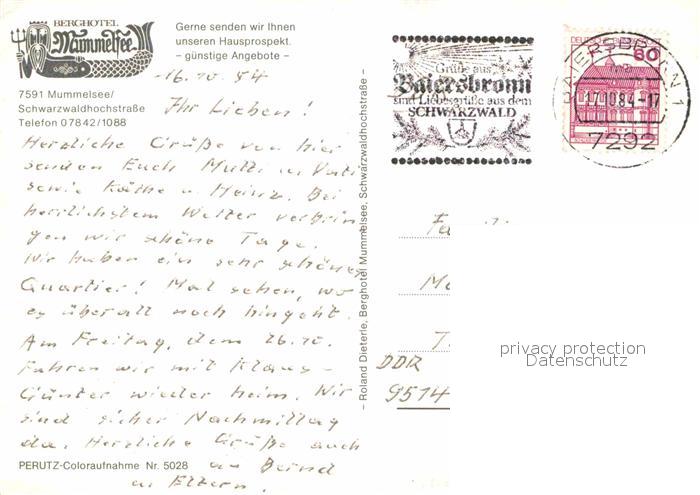 BERGHOTEL
Mummelsee
Gerne senden wir Ihnen
unseren Hausprospekt.
– günstige Angebote –
7591 Mummelsee/
Schwarzwaldhochstraße
Telefon 07842/1088
16.10.84
Ihr Lieben!
Herzliche Grüße von hier
senden Euch Mutti u. Vati
sowie Käthe u. Heinz. Bei
herrlichstem Wetter verbrin-
gen wir schöne Tage.
Wir haben ein sehr schönes
Quartier! Mal sehen, wo
es überall noch hingeht.
Am Freitag, dem 26.10.
fahren wir mit Klaus-
Günter wieder heim. Wir
sind sicher Nachmittag
da. Herzliche Grüße auch
an Bernd
u. Eltern.
PERUTZ-Coloraufnahme Nr. 5028
– Roland Dieterle, Berghotel Mummelsee, Schwarzwaldhochstraße –
Grüße aus
Baiersbronn
sind Liebesgrüße aus dem
SCHWARZWALD
DEUTSCHE BUNDESPOST
80
BAIERSBRONN 1
17.10.84-17
7292
DDR
9514
privacy protection
Datenschutz